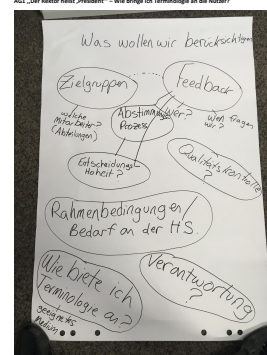 AG1 „Der Rektor heißt ‚President‘“ – Wie bringe ich Terminologie an die Nutzer?
Was wollen wir berücksichtigen
Zielgruppen
Feedback
welche
Mitarbeiter?
(Abteilungen)
Abstimm.
Prozess
wer?
wen fragen
wir?
Entscheidungs
Hoheit?
Qualitätskontrolle
?
Rahmenbedingungen/
Bedarf an der HS.
Wie biete ich
Terminologie an?
geeignetes
Medium
Verantwortung
?